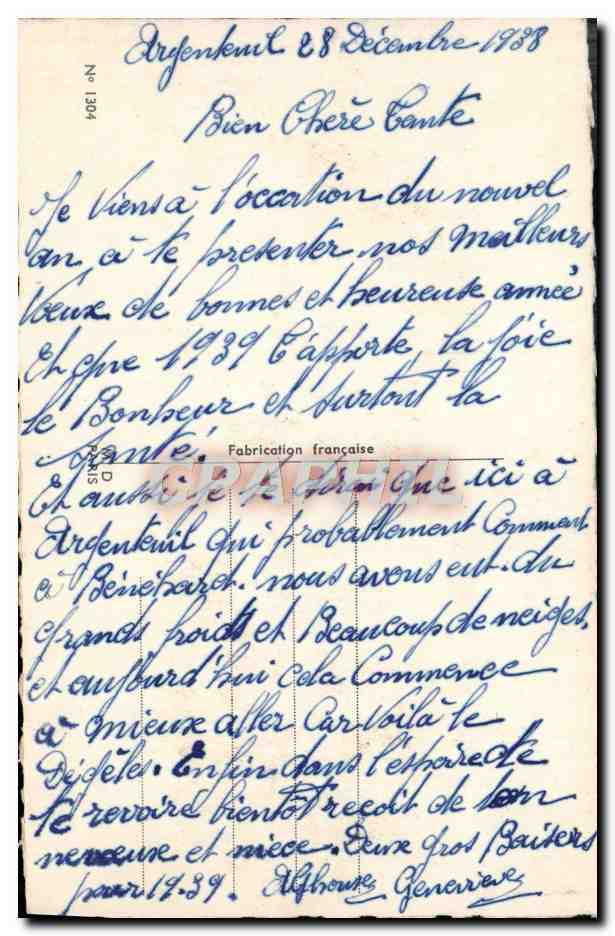 Argenteuil 28 Décembre 1938
N° 1304
Bien Chère Tante
Je Viens à l'occation du nouvel
an à te presenter nos mailleurs
Vœux de bonnes et heureuse année
Et que 1939 t'apporte la joie
le Bonheur et surtout la
santé.
M D
PARIS
Fabrication française
CPAPHIL
Et aussi je te dirai que ici à
Argenteuil qui probablement Comment
à Bénéhard. nous avons eut du
grands froids et Beaucoup de neiges.
et aujourd'hui cela Commence
à mieux aller Car Voilà le
Dégèles. Enfin dans l'espoire de
te revoiré bientôt reçoit de ton
neveux et nièce. Deux gros Baisers
pour 1939. Alphonse Geneviève